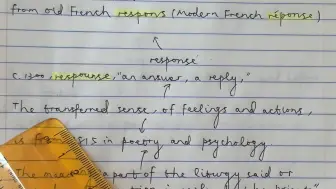 from old French respons (Modern French réponse)
response
c. 1300, respounse, "an answer, a reply,"
The transferred sense, of feelings and actions,
is from 1815 in poetry and psychology
The meaning a part of the liturgy said or